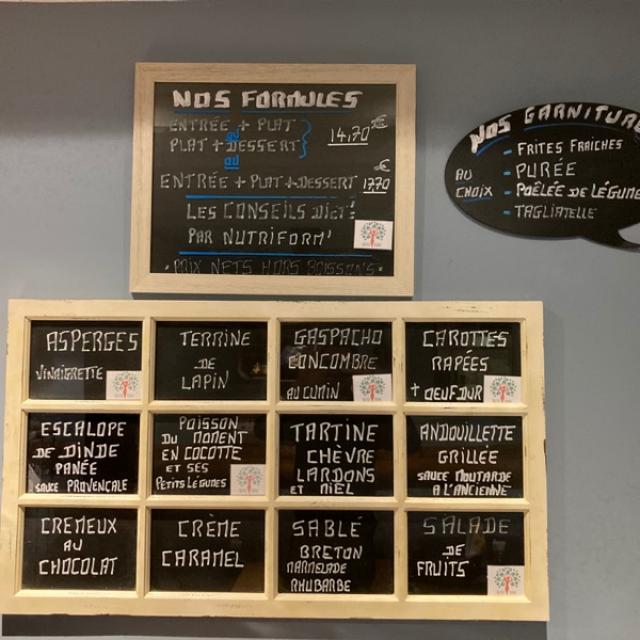 NOS FORMULES
ENTRÉE + PLAT
ou
PLAT + DESSERT
14,70€
ou
ENTRÉE + PLAT + DESSERT 17,70€
LES CONSEILS DIÉT'
PAR NUTRIFORM'
• PRIX NETS HORS BOISSONS •
NOS GARNITURE
AU CHOIX
- FRITES FRAICHES
- PURÉE
- POÊLÉE DE LÉGUME
- TAGLIATELLE
ASPERGES
VINAIGRETTE
TERRINE
DE
LAPIN
GASPACHO
CONCOMBRE
AU CUMIN
CAROTTES
RAPÉES
+ OEUF DUR
ESCALOPE
DE DINDE
PANÉE
SAUCE PROVENÇALE
POISSON
DU MOMENT
EN COCOTTE
ET SES
PETITS LÉGUMES
TARTINE
CHÈVRE
LARDONS
ET MIEL
ANDOUILLETTE
GRILLÉE
SAUCE MOUTARDE
A L'ANCIENNE
CREMEUX
AU
CHOCOLAT
CRÈME
CARAMEL
SABLÉ
BRETON
MARMELADE
RHUBARBE
SALADE
DE
FRUITS